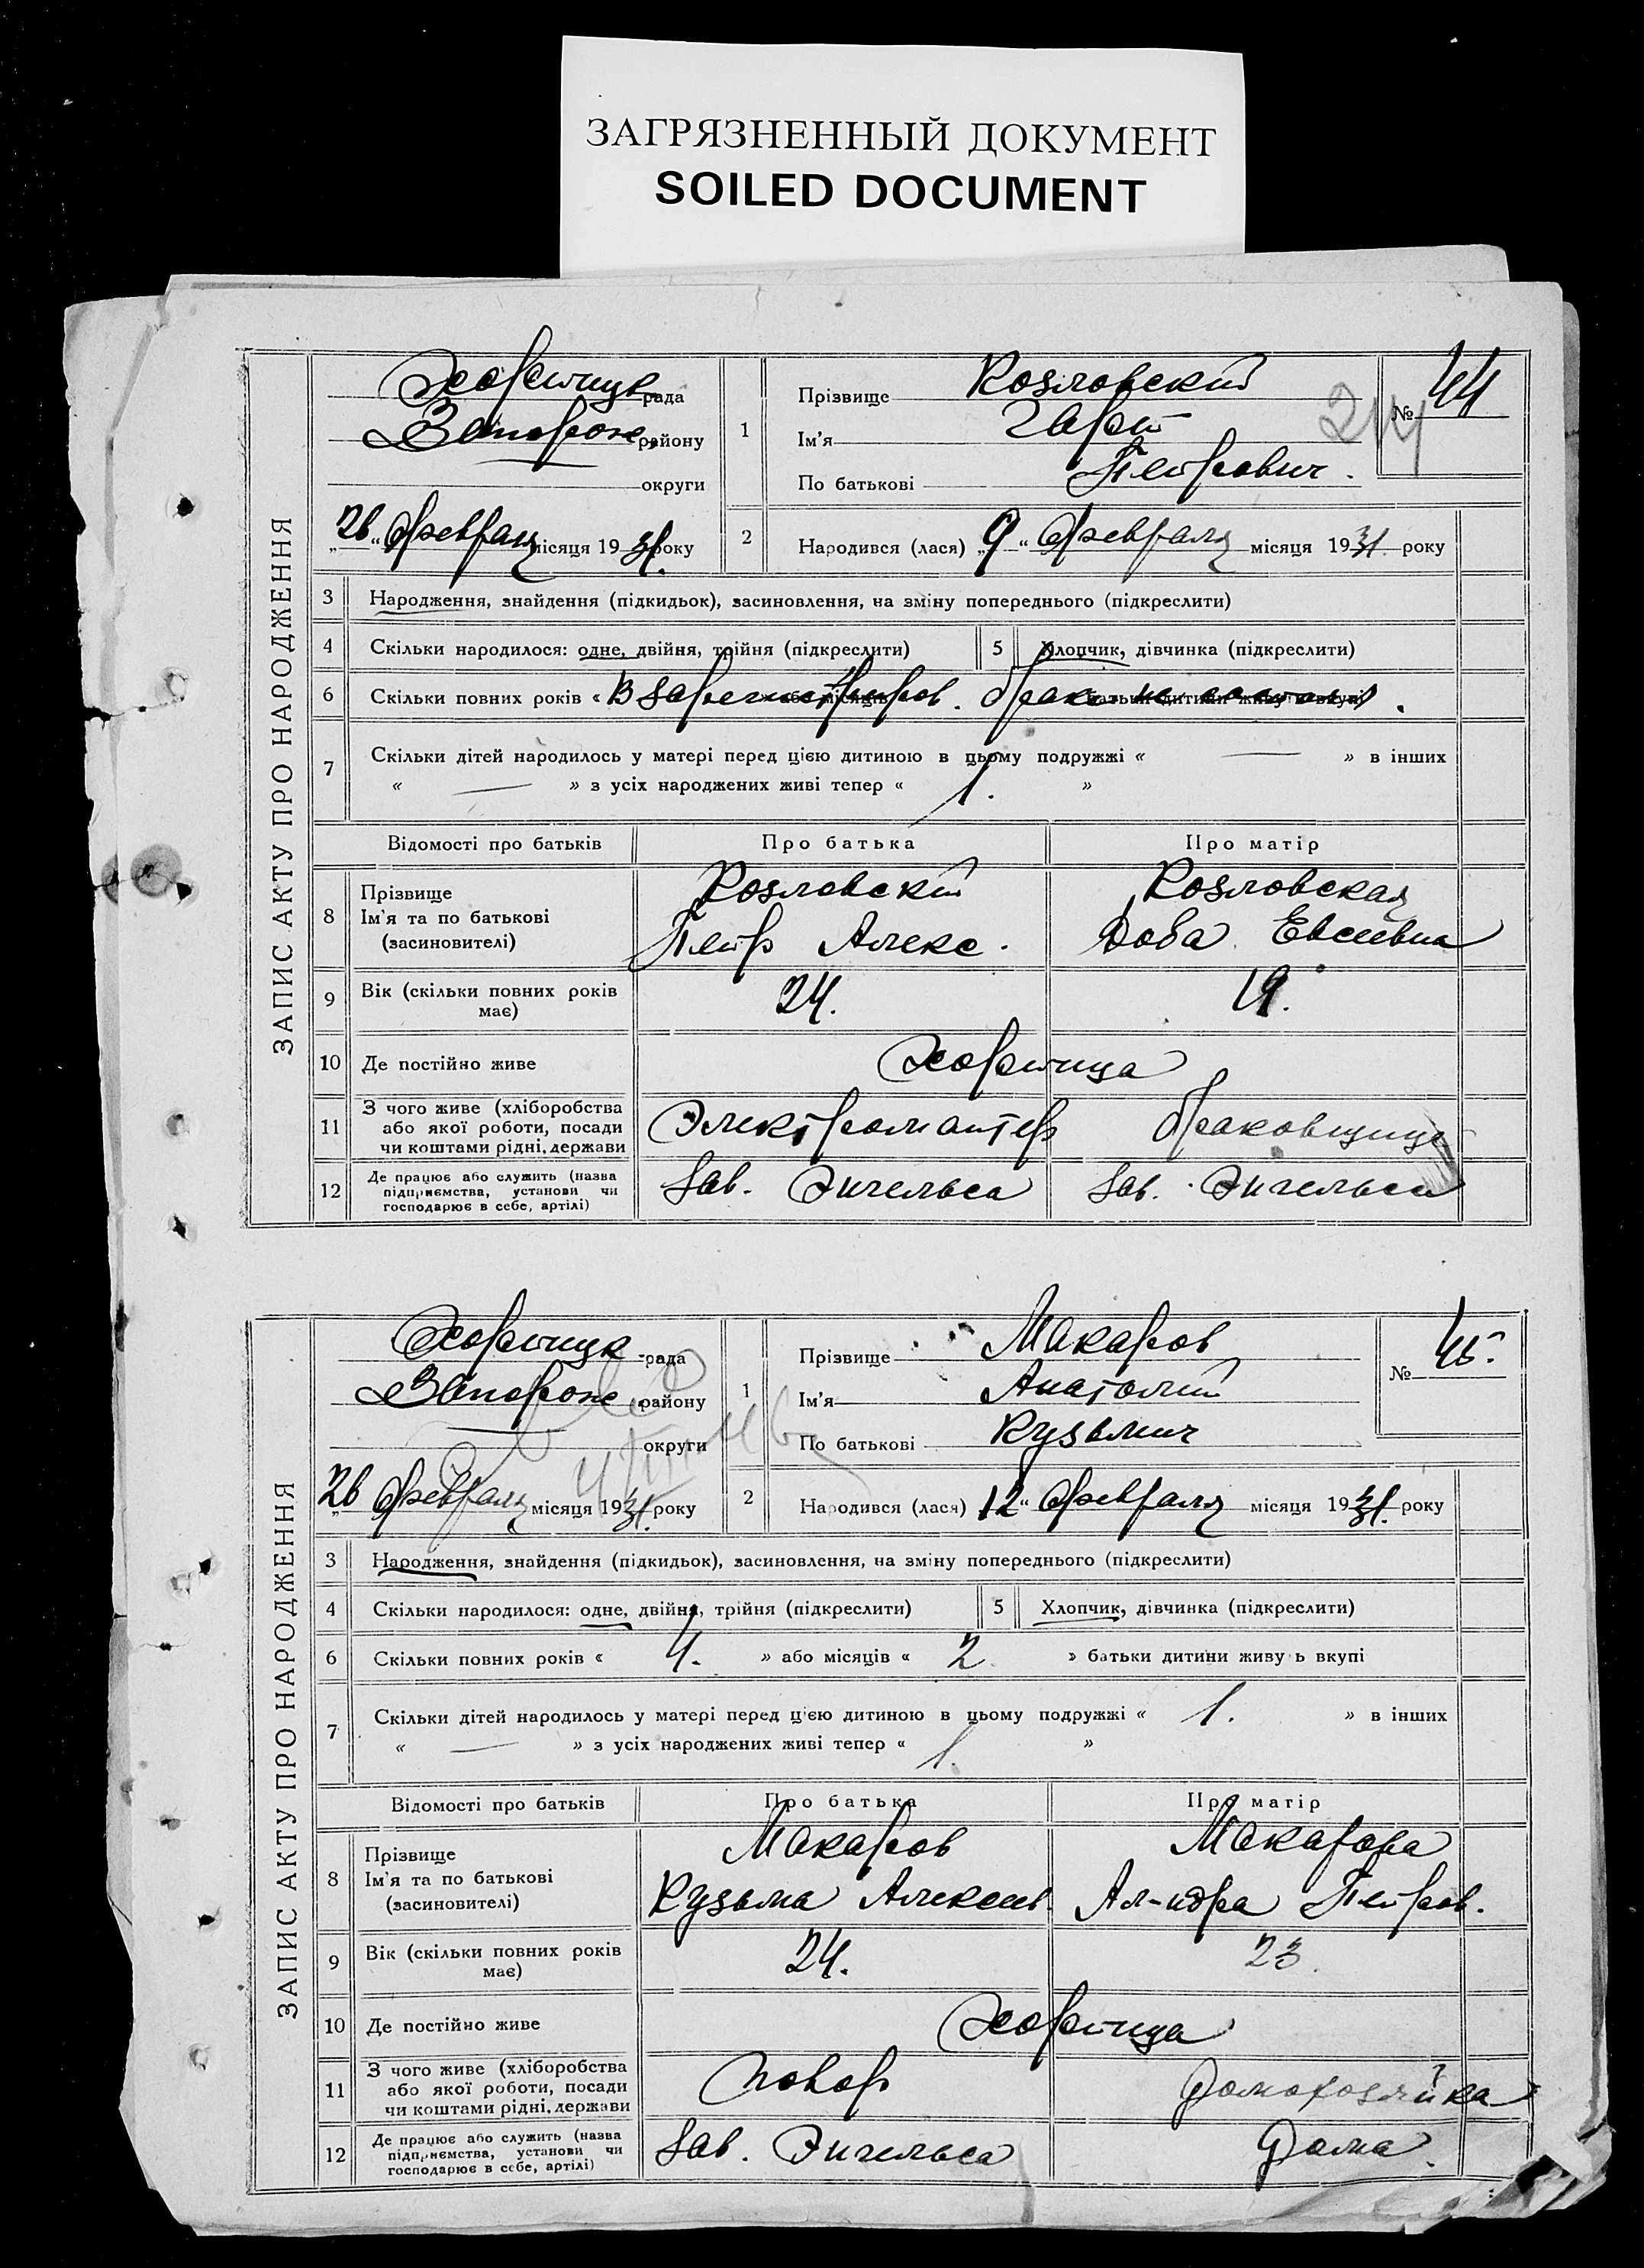 ЗАГРЯЗНЕННЫЙ ДОКУМЕНТ
SOILED DOCUMENT
ЗАПИС АКТУ ПРО НАРОДЖЕННЯ
Хортицк рада
Запорож району
округи
„26“ февраля місяця 1931 року
1
Прізвище Козловский
Ім'я Гарри
По батькові Петрович.
№ 44
2
Народився (лася) „9“ февраля місяця 1931. року
3 Народження, знайдення (підкидьок), засиновлення, на зміну попереднього (підкреслити)
4 Скільки народилося: одне, двійня, трійня (підкреслити) 5 Хлопчик, дівчинка (підкреслити)
6 Скільки повних років « В зарегистриров. браке не состоят.
7 Скільки дітей народилось у матері перед цією дитиною в цьому подружжі « — » в інших
« — » з усіх народжених живі тепер « 1. »
Відомості про батьків Про батька Про матір
8 Прізвище Козловский Козловская
Ім'я та по батькові
(засиновителі) Петр Алекс. Доба Евсеевна
9 Вік (скільки повних років має) 24. 19.
10 Де постійно живе Хортица
11 З чого живе (хліборобства
або якої роботи, посади
чи коштами рідні, держави Электромантер браковщица
12 Де працює або служить (назва
підприємства, установи чи
господарює в себе, артілі) Зав. Энгельса Зав. Энгельса
ЗАПИС АКТУ ПРО НАРОДЖЕННЯ
Хортицк рада
Запорож району
округи
„26 февраля місяця 1931. року
1
Прізвище Макаров
Ім'я Анатолий
По батькові Кузьмич
№ 45.
2
Народився (лася) 12“ февраля місяця 1931. року
3 Народження, знайдення (підкидьок), засиновлення, на зміну попереднього (підкреслити)
4 Скільки народилося: одне, двійня, трійня (підкреслити) 5 Хлопчик, дівчинка (підкреслити)
6 Скільки повних років « 4. » або місяців « 2 » батьки дитини живуть вкупі
7 Скільки дітей народилось у матері перед цією дитиною в цьому подружжі « 1. » в інших
« — » з усіх народжених живі тепер « 1. »
Відомості про батьків Про батька Про матір
8 Прізвище Макаров Макарова
Ім'я та по батькові
(засиновителі) Кузьма Алексеев. Ал-ндра Петров.
9 Вік (скільки повних років має) 24. 23.
10 Де постійно живе Хортица
11 З чого живе (хліборобства
або якої роботи, посади
чи коштами рідні, держави Повар Домохозяйка
12 Де працює або служить (назва
підприємства, установи чи
господарює в себе, артілі) Зав. Энгельса Дома.